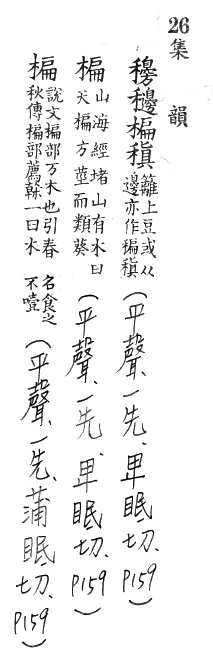 26集韻
稨稹籬上豆或从邊亦作稨稹(平聲、一先、卑眠切、P159)
楄山海經堵山有木曰天楄方莖而類葵(平聲、一先、卑眠切、P159)
楄說文楄部方木也引春秋傳楄部薦榦一曰木名食之不噎(平聲、一先、蒲眠切、P159)